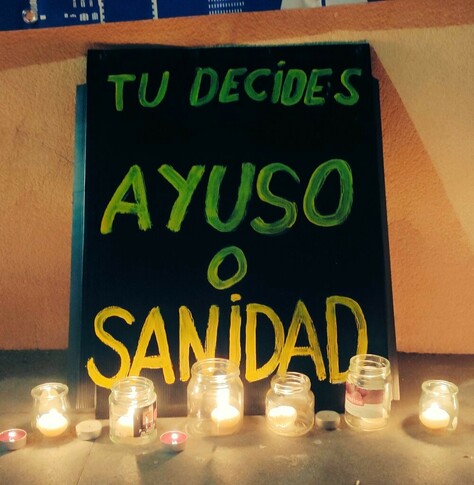 TU DECIDES
AYUSO
O
SANIDAD